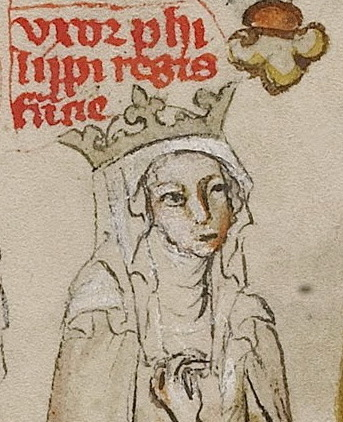 vxor phi
lippi regis
fᵃncie